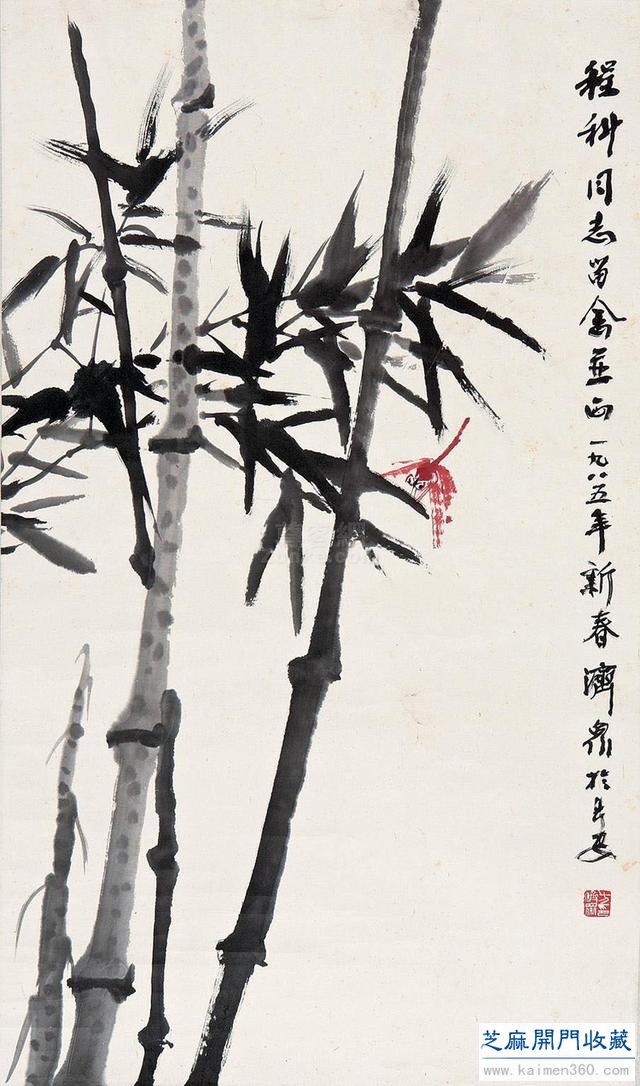 程科同志留念並正一九八五年新春濟眾於長安
芝麻開門收藏
www.kaimen360.com